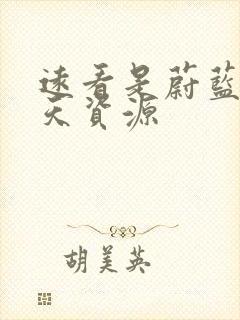 速看是蔚藍
天資源
胡美英